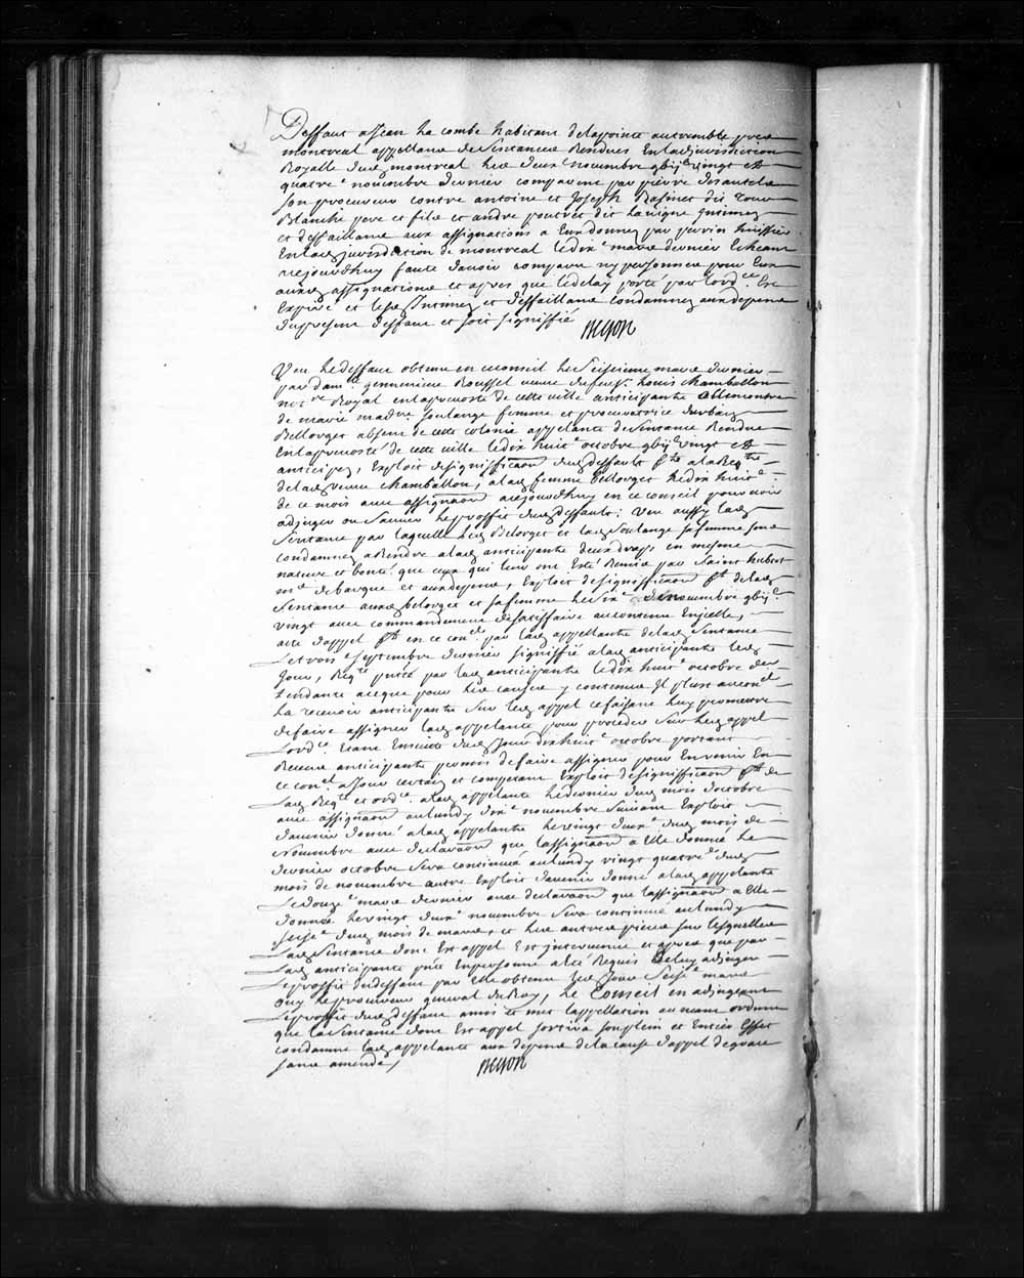 Deffaut a Jean La combe habitant de la pointe aux trembles pres
montreal appellant de Sentences Rendues En lad jurisdiction
Royalle dud montreal les deux novembre gbijc vingt et
quatre novembre dernier comparent par pierre
son procureur contre antoine et Joseph Bazinet dit Tour
Blanche pere et fils et andre poutret dit Lavigne Intimez
et deffaillans aux assignations a Eux données par huissier
En lad jurisdiction de montreal le dixe mars dernier Echeant
aujourdhuy faute davoir comparu ny personne pour Eux
auxd assignations et apres que le delay porté par lordce Est
Expiré et lesd Intimez et deffaillans condamnez aux depens
du present deffaut et soit signiffié
Begon
Veu le deffaut obtenu en ce conseil le Seizieme mars dernier
par damlle genevieve Roussel veuve de feu Sr Louis chamballon
nore Royal en la prevosté de cette ville anticipante allencontre
de marie madne soulange femme et procuratrice durbain
Bellorget absent de cette colonie appelante de Sentence Rendue
En la prevosté de cette ville le dix huite octobre gbijc vingt et
anticipée, Exploit de signiffication dud deffault fte a la Reqte
de lad veuve chamballon, a lad femme Bellorget le dix huite
de ce mois avec assignaon aujourdhuy en ce conseil pour voir
adjuger ou Sauver le proffit dud deffault; Veu aussy lad
Sentence par laquelle led Belorget et lad Soulange sa femme sont
condamnez a Rendre a lad anticipante deux draps en mesme
nature et bonté que ceux qui leur ont Esté Remis par Saint hubert
me de barque et aux depens, Exploit de signiffication ft de lad
Sentence auxd belorget et sa femme le Sixe novembre gbijc
vingt avec commandement de satisfaire au contenu En icelle,
acte dappel ft en ce conel par lad appellante de lad Sentence
Le trois septembre dernier signiffié a lad anticipante led
Jour, Reqte pntée par lad anticipante le dix huite octobre der
tendante a ce que pour les causes y contenues Il plust au conel
La recevoir anticipante Sur led appel ce faisant luy permettre
de faire assigner lad appelante pour proceder Sur led appel
Lordce Etant Ensuite dud Jour dix huite octobre portant
Receue anticipante permis de faire assigner pour En venir En
ce conel a Jour certain et competant Exploit de signiffication ft de
Lad Reqte et ordce a lad appelante le dernier dud mois doctobre
avec assignaon au lundy dixe novembre Suivant Exploit
davenir donné a lad appelante le vingt deuxe dud mois de
Novembre avec declaraon que lassignaon a Elle donnée le
dernier octobre Sera continuée au lundy vingt quatre dud
mois de novembre autre Exploit davenir donné a lad appelante
Le douze mars dernier avec declaraon que lassignaon a Elle
donnée le vingt deuxe novembre Sera continuée au lundy
seize dud mois de mars, et les autres pieces sur lesquelles
Lad Sentence dont Est appel Est intervenue et apres que par
Lad anticipante pnte En personne a Eté Requis Estre adjuger
Le proffit du deffaut par Elle obtenu led Jour Seize mars
ouy le procureur general du Roy, Le Conseil en adjugeant
Le proffit dud deffaut a mis et met lappellation au neant ordonne
que la Sentence dont Est appel sortira son plein et Entier Effet
condamne lad appelante aux depens de la cause dappel de grace
sans amende,
Begon